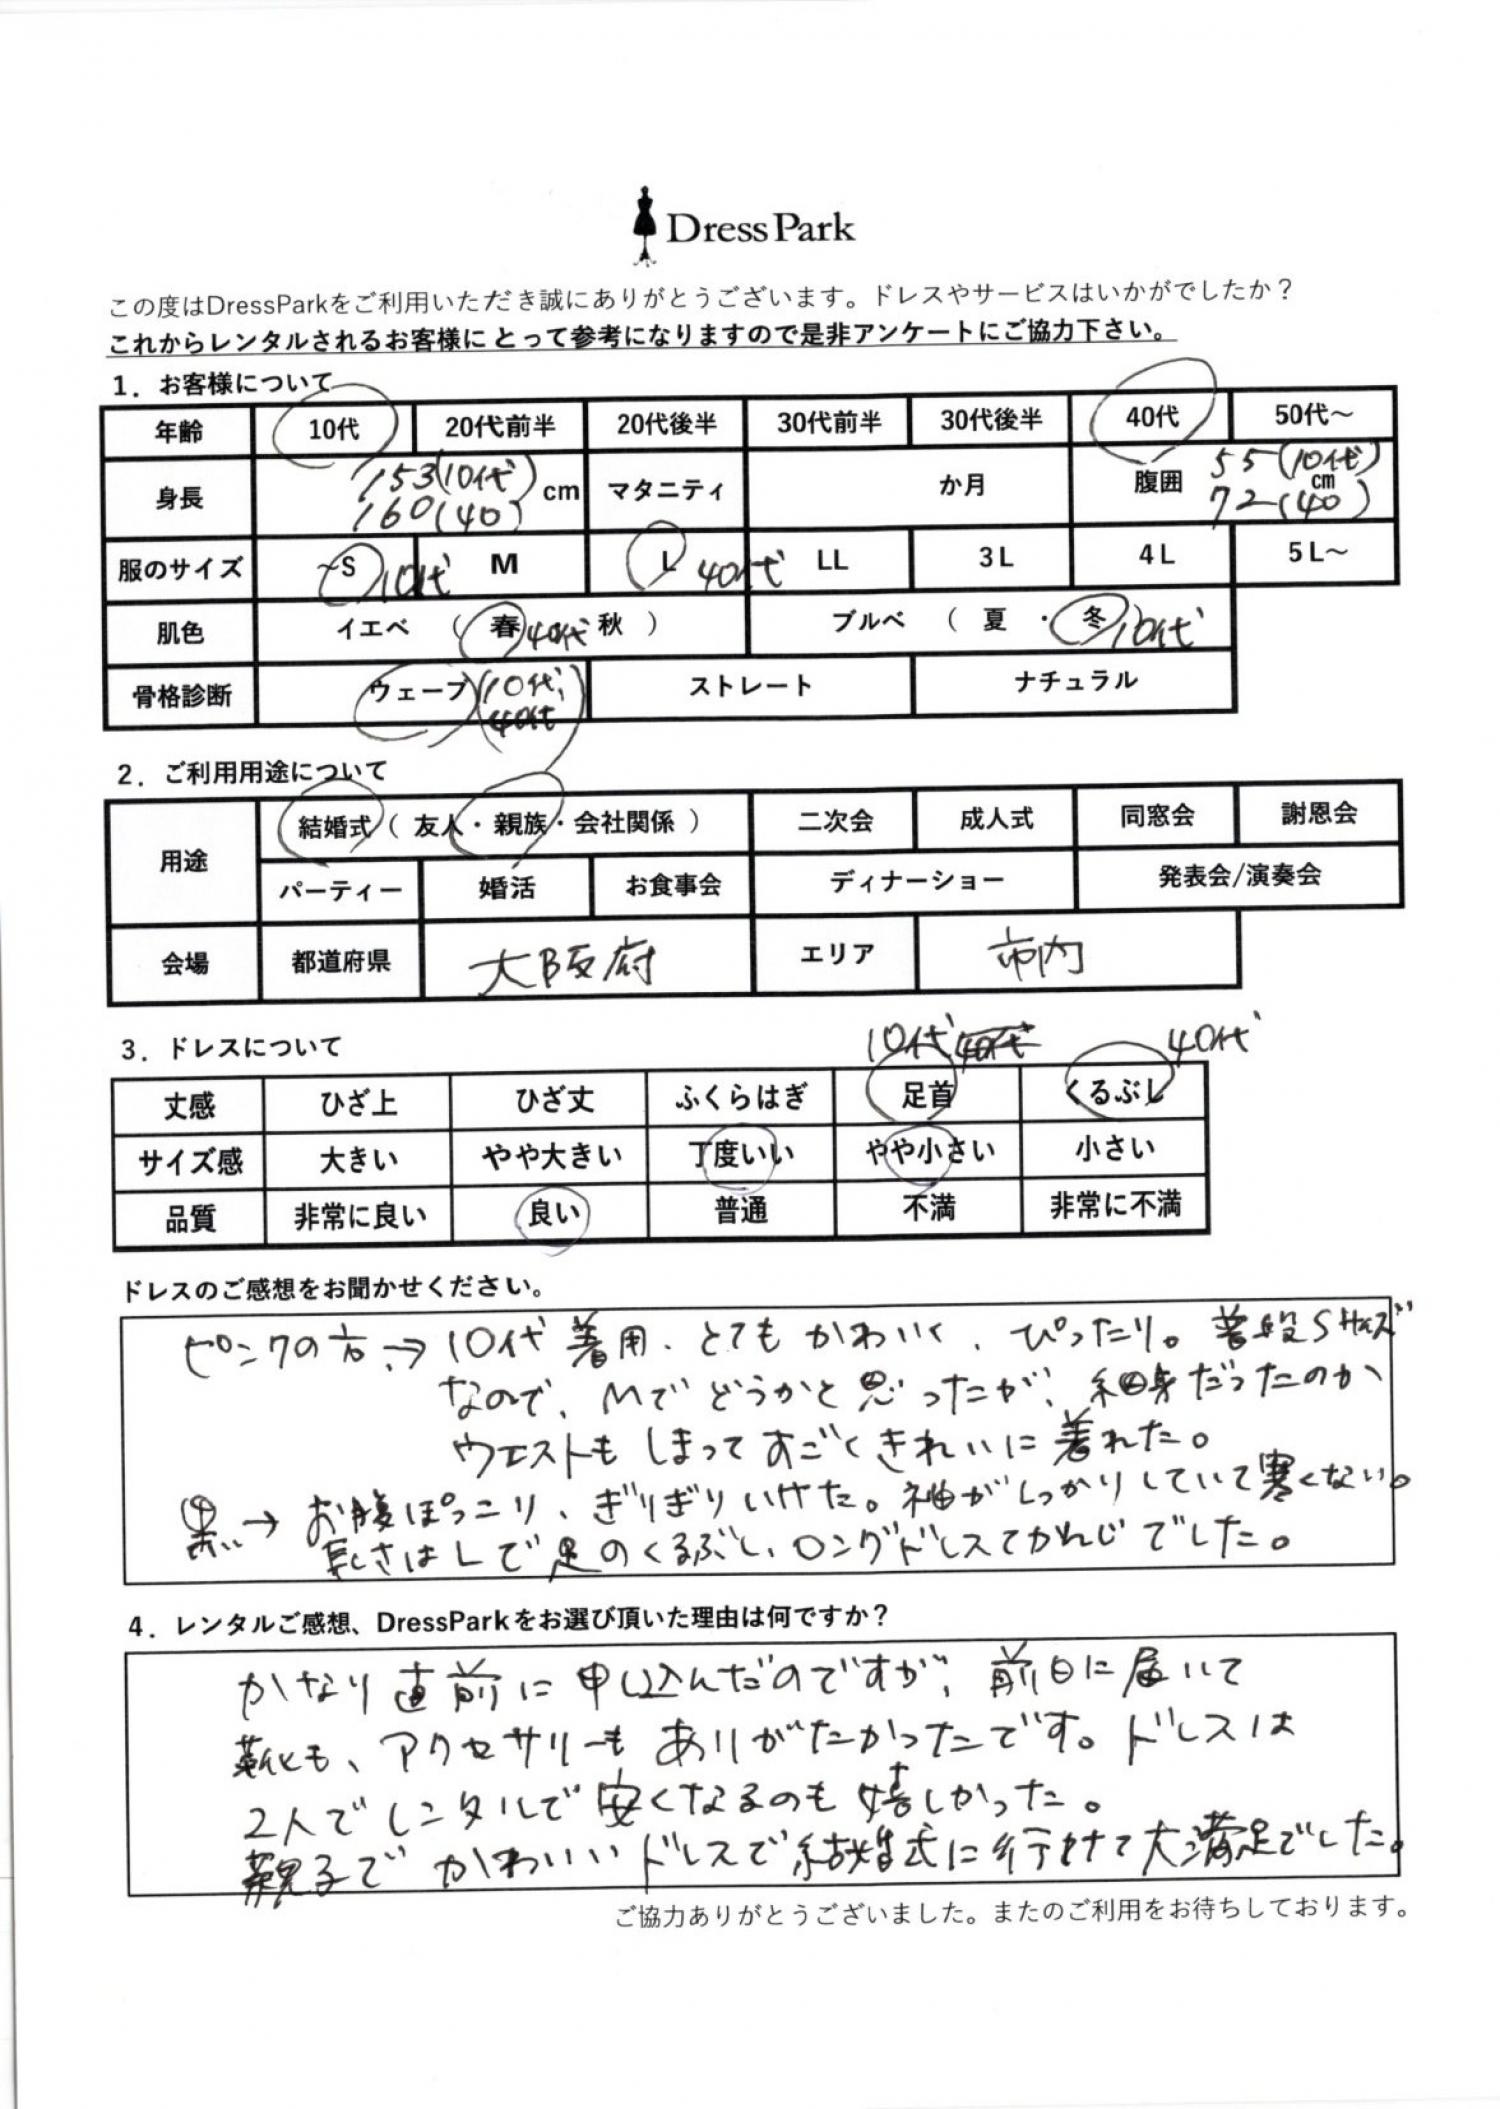 Dress Park
この度はDressParkをご利用いただき誠にありがとうございます。ドレスやサービスはいかがでしたか？
これからレンタルされるお客様にとって参考になりますので是非アンケートにご協力下さい。
1．お客様について
年齢 10代 20代前半 20代後半 30代前半 30代後半 40代 50代～
身長 153(10代) 160(40) cm マタニティ か月 腹囲 55(10代) cm 72(40)
服のサイズ ～S 10代 M L 40代 LL 3L 4L 5L～
肌色 イエベ （ 春 40代 秋 ） ブルベ （ 夏 ・ 冬 ） 10代
骨格診断 ウェーブ (10代, 40代) ストレート ナチュラル
2．ご利用用途について
用途 結婚式（ 友人・親族・会社関係 ） 二次会 成人式 同窓会 謝恩会
パーティー 婚活 お食事会 ディナーショー 発表会/演奏会
会場 都道府県 大阪府 エリア 市内
3．ドレスについて
10代 40代 40代
丈感 ひざ上 ひざ丈 ふくらはぎ 足首 くるぶし
サイズ感 大きい やや大きい 丁度いい やや小さい 小さい
品質 非常に良い 良い 普通 不満 非常に不満
ドレスのご感想をお聞かせください。
ピンクの方→10代着用、とてもかわいく、ぴったり。普段Sサイズ
なので、Mでどうかと思ったが、細身だったのか
ウエストもしまってすごくきれいに着れた。
黒→お腹ぽっこり、ぎりぎりいけた。袖がしっかりしていて寒くない。
長さはLで足のくるぶし、ロングドレスてかんじでした。
4．レンタルご感想、DressParkをお選び頂いた理由は何ですか？
かなり直前に申し込んだのですが、前日に届いて
靴も、アクセサリーもありがたかったです。ドレスは
2人でレンタルで安くなるのも嬉しかった。
親子でかわいいドレスで結婚式に行けて大満足でした。
ご協力ありがとうございました。またのご利用をお待ちしております。